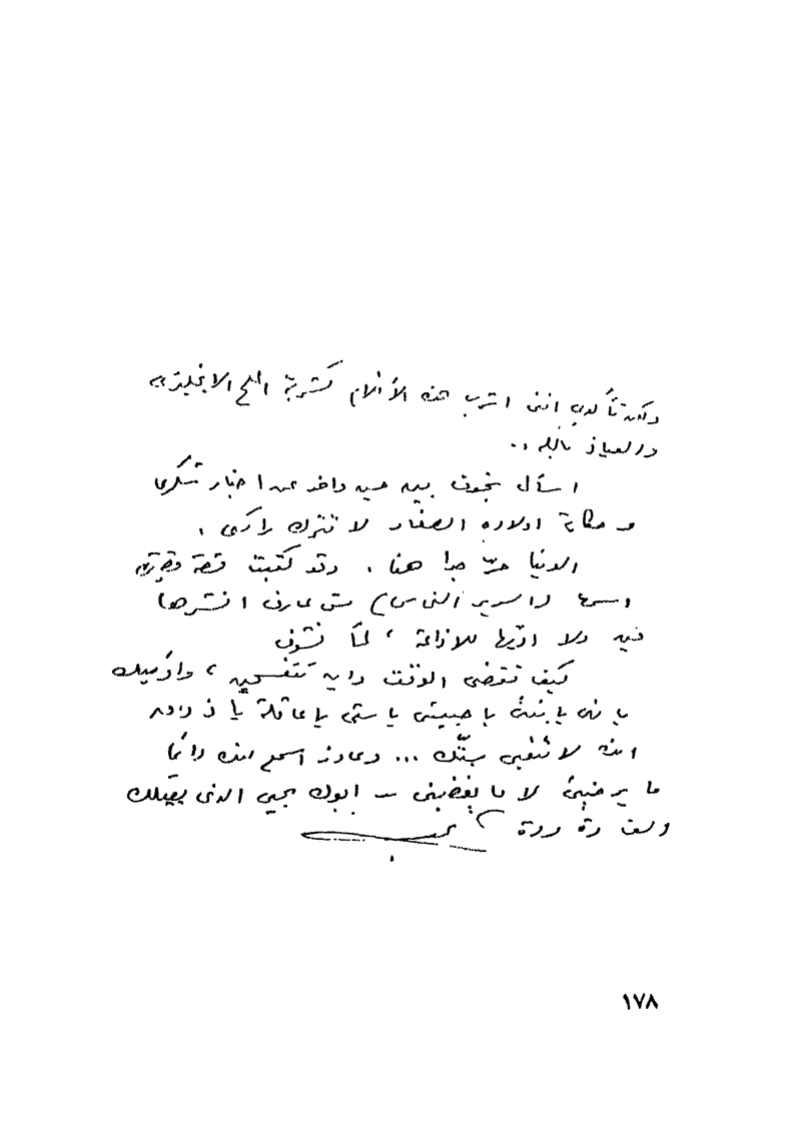 ولكن تأكدي انني اشرب هذه الأفلام كشربة الملح الانجليزي
والعياذ بالله ..
اسأل نجوى بين حين واخر عن اخبار شكري
و اولاده الصغار لا تترك
الدنيا حرّ جدا هنا . وقد كتبت قصة قصيرة
اسمها (سرير النحاس) مش عارف انشرها
فين ولا اديها للاذاعة ، لمّا نشوف
كيف تقضي الوقت واين تتفسحين ،
يا نهى يا بنتي يا حبيبتي يا ستي يا عاقلة يا
انت لا تتعبي ستّك ... وعاوز اسمع عنك دائما
ما يرضيني لا ما يغضبني — ابوك يحيى الذي يقبلك
والف مرة ومرة
يحيى
١٧٨